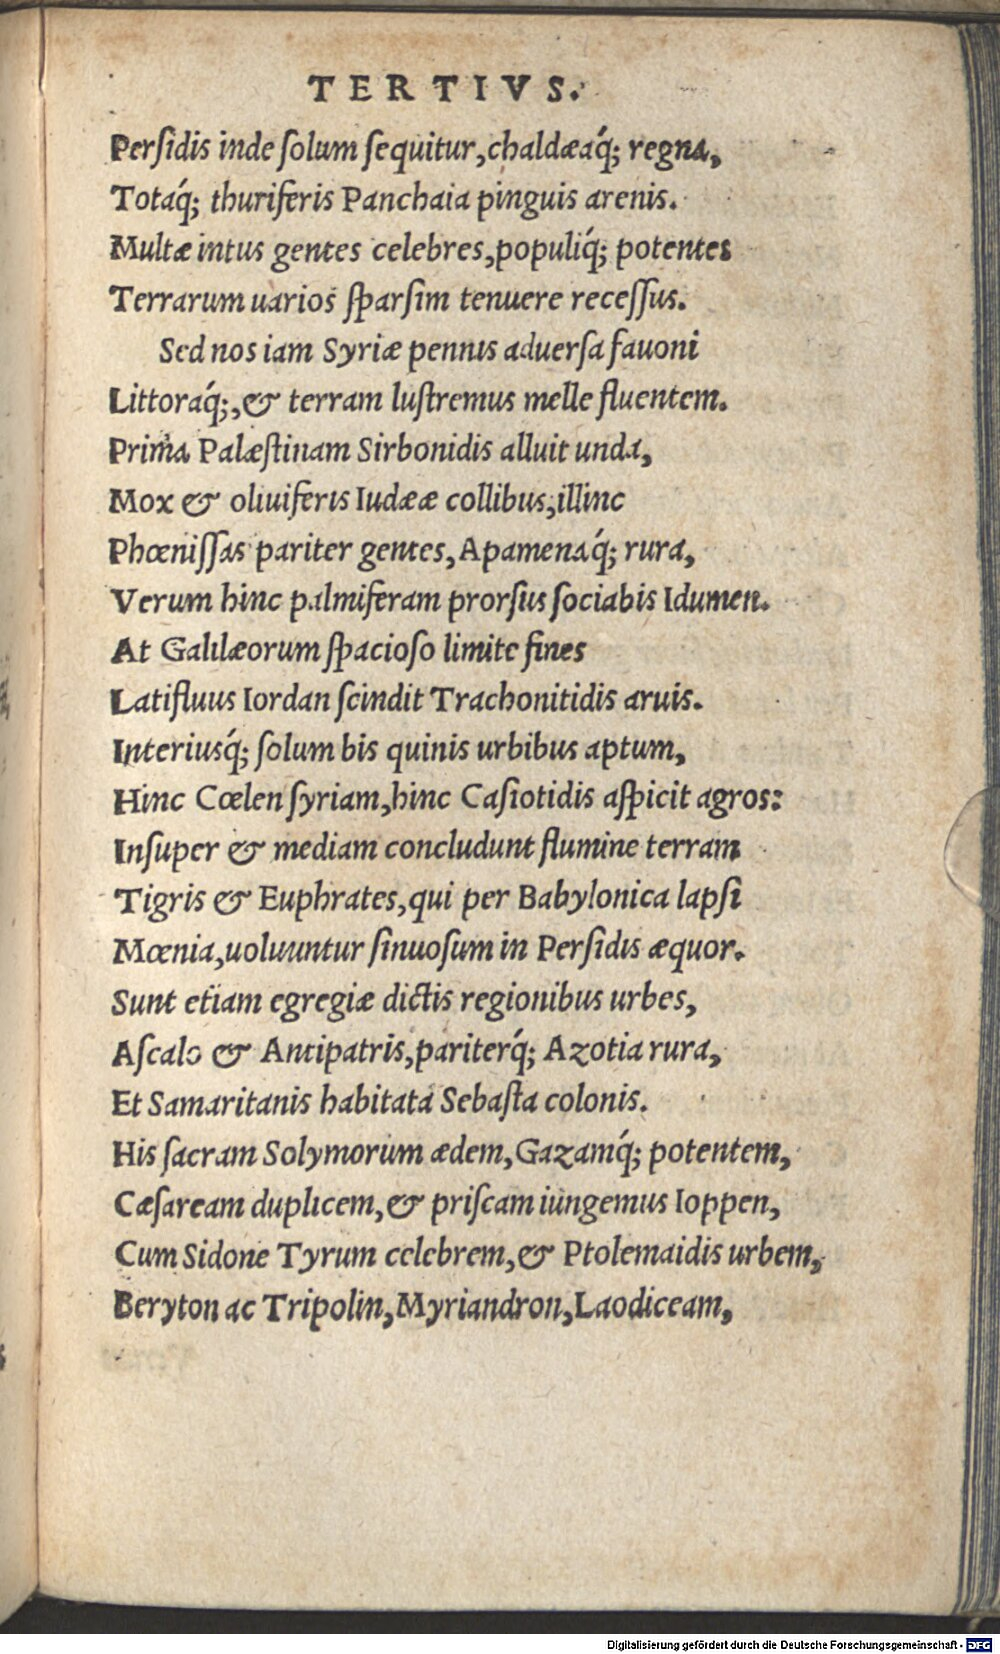 TERTIVS.
Perſidis inde ſolum ſequitur, chaldæaq́; regna,
Totaq́; thuriferis Panchaia pinguis arenis.
Multæ intus gentes celebres, populiq́; potentes
Terrarum uarios ſparſim tenuere receſſus.
Sed nos iam Syriæ pennis aduerſa fauoni
Littoraq́;, & terram luſtremus melle fluentem.
Prima Palæſtinam Sirbonidis alluit unda,
Mox & oliuiferis Iudææ collibus, illinc
Phœniſſas pariter gentes, Apamenaq́; rura,
Verum hinc palmiferam prorſus ſociabis Idumen.
At Galilæorum ſpacioſo limite fines
Latifluus Iordan ſcindit Trachonitidis aruis.
Interiusq́; ſolum bis quinis urbibus aptum,
Hinc Cœlen ſyriam, hinc Caſiotidis aſpicit agros:
Inſuper & mediam concludunt flumine terram
Tigris & Euphrates, qui per Babylonica lapſi
Mœnia, uoluuntur ſinuoſum in Perſidis æquor.
Sunt etiam egregiæ dictis regionibus urbes,
Aſcalo & Antipatris, pariterq́; Azotia rura,
Et Samaritanis habitata Sebaſta colonis.
His ſacram Solymorum ædem, Gazamq́; potentem,
Cæſaream duplicem, & priſcam iungemus Ioppen,
Cum Sidone Tyrum celebrem, & Ptolemaidis urbem,
Beryton ac Tripolin, Myriandron, Laodiceam,
Digitalisierung gefördert durch die Deutsche Forschungsgemeinschaft - DFG